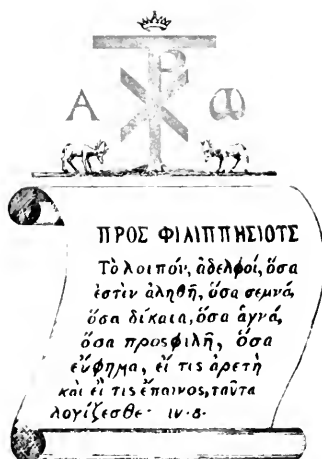 Α Ω
ΠΡΟΣ ΦΙΛΙΠΠΗΣΙΟΤΣ
Τὸ λοιπόν, ἀδελφοί, ὅσα
ἐστὶν ἀληθῆ, ὅσα σεμνά,
ὅσα δίκαια, ὅσα ἁγνά,
ὅσα προσφιλῆ, ὅσα
εὔφημα, εἴ τις ἀρετὴ
καὶ εἴ τις ἔπαινος, ταῦτα
λογίζεσθε· IV·8·